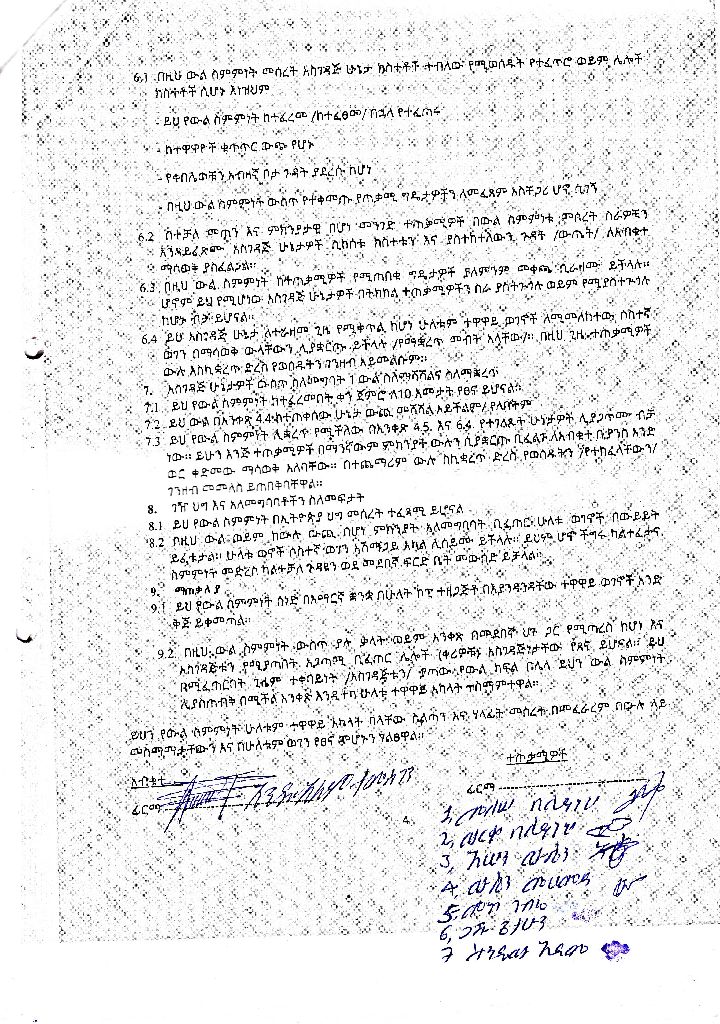 6.1 በዚህ ውል ስምምነት መሰረት አስገዳጅ ሁኔታ ክስተቶች ተብለው የሚወሰዱት የተፈጥሮ ወይም ሌሎች
ክስተቶች ሲሆኑ እነዝህም
- ይህ የውል ስምምነት ከተፈረመ /ከተፈፀመ/ በኋላ የተፈጠሩ
- ከተዋዋዮች ቁጥጥር ውጭ የሆኑ
- የቀበሌዎቹን አብዛኛ ቦታ ጉዳት ያደረሱ ከሆነ
- በዚህ ውል ስምምነት ውስጥ የተቀመጡ ያጠቃሚ ግዴታዎችን ለመፈጸም አስቸጋሪ ሆኖ ሲገኝ
6.2 ስተቻለ መጠን እና ምክንያታዊ በሆነ መንገድ ተጠቃሚዎች በውል ስምምነቱ መሰረት ስራዎቹን
እንዳይፈጽሙ አስገዳጅ ሁኔታዎች ሲከሰቱ ክስተቱን እና ያስከተለውን ጉዳት /ውጤት/ ለአብቁተ
ማሳወቅ ያስፈልጋል።
6.3 በዚህ ውል ስምምነት ከተጠቃሚዎች የሚጠበቁ ግዴታዎች ያለምንም መቀጫ ሊራዘሙ ይችላሉ።
ሆኖም ይህ የሚሆነው አስገዳጅ ሁኔታዎች በትክክል ተጠቃሚዎችን ስራ ያስትጓጎሉ ወይም የሚያስተጓጎሉ
ከሆኑ ብቻ ይሆናል።
6.4 ይህ አስገዳጅ ሁኔታ ለተራዘመ ጊዜ የሚቀጥል ከሆነ ሁለቱም ተዋዋይ ወገኖች ለሚመለከተው ሶስተኛ
ወገን በማሳወቅ ውላቸውን ሊያቋርጡ ይችላሉ /የማቋረጥ መብት አላቸው/። በዚህ ጊዜ ተጠቃሚዎች
ውሉ እስኪቋረጥ ድረስ የወሰዱትን ገንዘብ አይመልሱም።
7. አስገዳጅ ሁኔታዎች ውስጥ ስለመግባት 1 ውል ስለማሻሻልና ስለማቋረጥ
7.1 ይህ የውል ስምምነት ከተፈረመበት ቀን ጀምሮ ለ10 አመታት የፀና ይሆናል።
7.2 ይህ ውል በአንቀጽ 4.4 ከተጠቀሰው ሁኔታ ውጪ መሻሻል አይችልም/ የለበትም
7.3 ይህ የውል ስምምነት ሊቋረጥ የሚችለው በአንቀጽ 4.5 እና 6.4 የተገለጹት ሁነታዎች ሊያጋጥሙ ብቻ
ነው። ይሁን እንጅ ተጠቃሚዎች በማንኛውም ምክንያት ውሉን ሊያቋርጡ ቢፈልጉ ለአብቁተ ቢያንስ አንድ
ወር ቀድመው ማሳወቅ አለባቸው። በተጨማሪም ውሉ ከኪቋረጥ ድረስ የወሰዱትን /የተከፈላቸውን/
ገንዘብ መመለስ ይጠበቅባቸዋል።
8. ገዥ ህግ እና አለመግባባቶችን ስለመፍታት
8.1 ይህ የውል ስምምነት በኢትዮጵያ ህግ መሰረት ተፈጻሚ ይሆናል
8.2 በዚህ ውል ወይም ከውሉ ውጪ በሆነ ምክንያት አለመግባባት ቢፈጠር ሁለቱ ወገኖች በውይይት
ይፈቱታል። ሁለቱ ወኖች ሶስተኛ ወገን አሸማጋይ አካል ሊሰይሙ ይችላሉ። ይህም ሆኖ ችግሩ ካልተፈታና
ስምምነት መድረስ ካልተቻለ ጉዳዩን ወደ መደበኛ ፍርድ ቤት መውሰድ ይቻላል።
9. ማጠቃለያ
9.1 ይህ የውል ስምምነት ሰነድ በአማርኛ ቋንቋ በሁለት ኮፒ ተዘጋጅቶ በእያንዳንዳቸው ተዋዋይ ወገኖች አንድ
ቅጅ ይቀመጣል።
9.2 በዚህ ውል ስምምነት ውስጥ ያሉ ቃላት ወይም አንቀጽ በመደበኛ ህጉ ጋር የሚጣረስ ከሆነ እና
አስገዳጅቱን የሚያጣበት አጋጣሚ ቢፈጠር ሌሎች (ቀሪዎቹ) አስገዳጅነታቸው የጸና ይሆናል። ይህ
በሚፈጠርባት ጊዜም ተቀባይነት /አስገዳጅቱን/ ያጣው የውል ክፍል በሌላ ይህን ውል ስምምነት
ሊያስጠብቅ በሚችል አንቀጽ እንዲተካ ሁለቱ ተዋዋይ አካላት ተስማምተዋል።
ይህን የውል ስምምነት ሁለቱም ተዋዋይ አካላት ባላቸው ስልጣን እና ሃላፊት መሰረት በመፈራረም በውሉ ላይ
መስማማታቸውን እና በሁለቱም ወገን የፀና መሆኑን ገልፀዋል።
አብቁተ
ፊርማ
ተጠቃሚዎች
ፊርማ
4
1,
2,
3,
4, መሀመድ
5.
6,
7 አደም